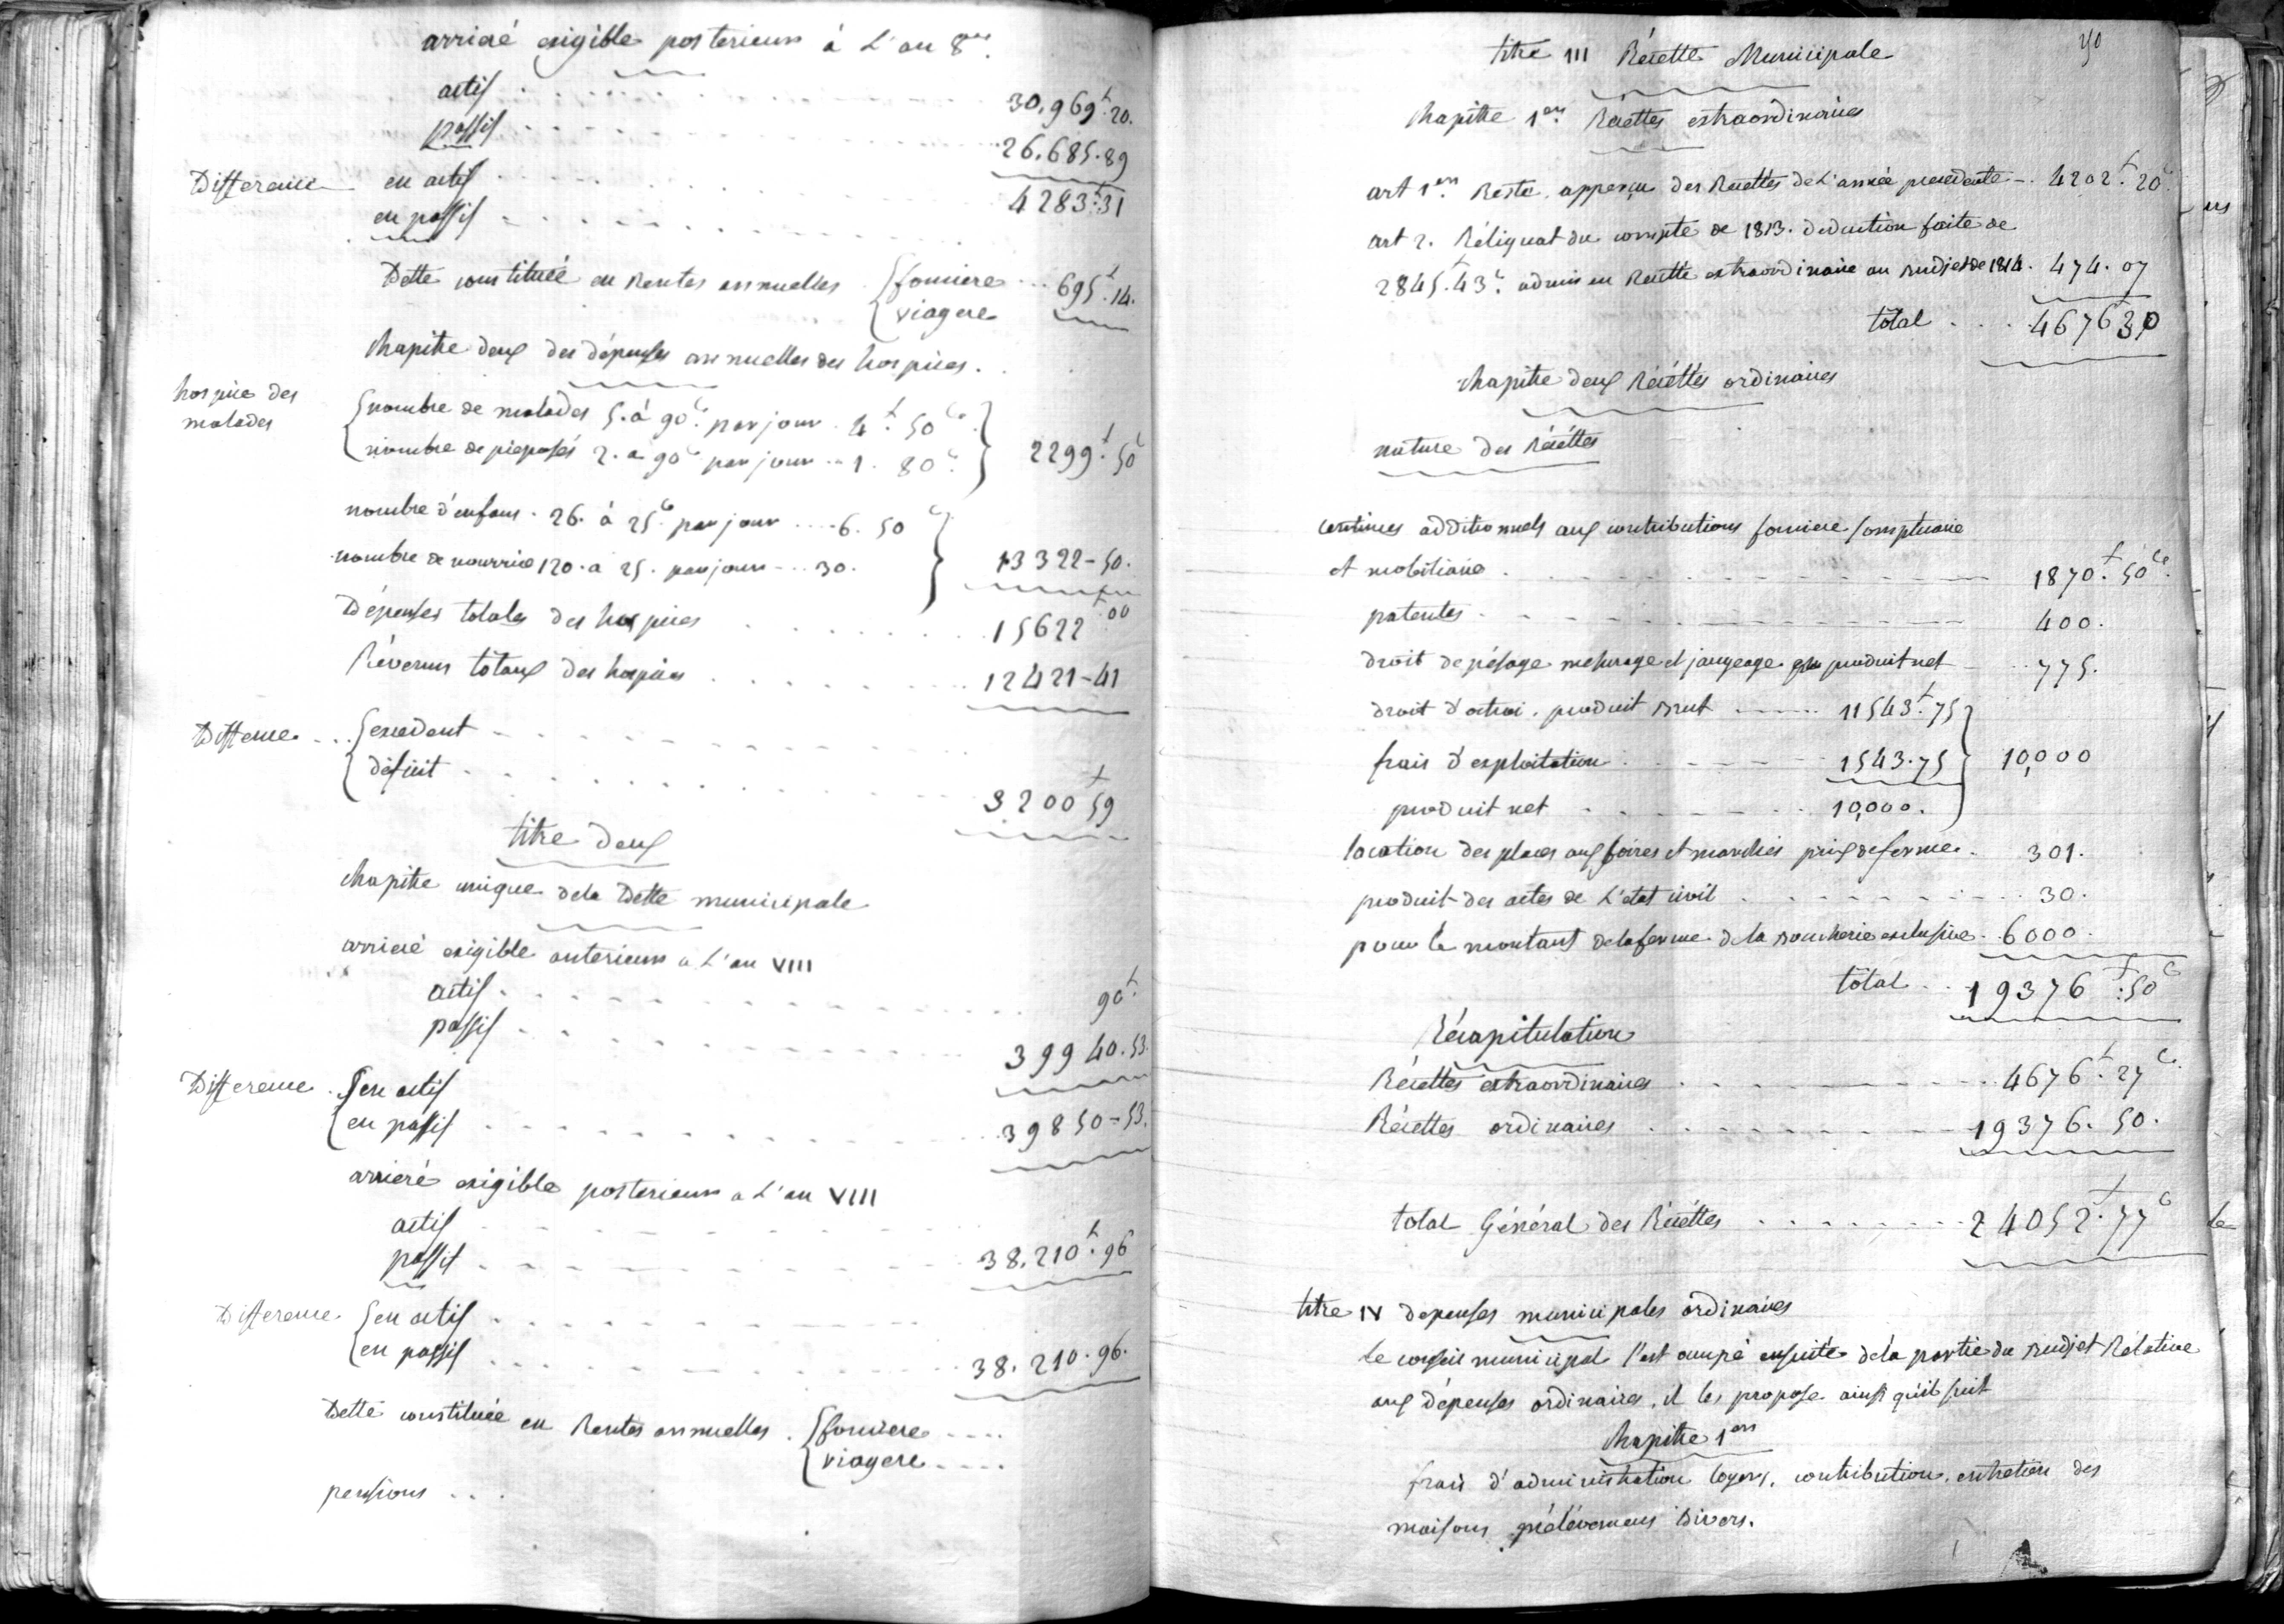 arrieré exigible posterieur à L'an 8me
actif . . . 30.969f.20.
passif . . . 26.685.89
Difference en actif . . . 4283f.31
en passif . . .
Dette constituée en Rentes annuelles { fonciere . . . 695f.14.
{ viagere
Chapitre deux des dépenses annuelles des hospices.
hospice des malades
{ nombre de malades 5. à 90c. par jour . 4f. 50c.
{ nombre de preposés 2. a 90c par jour . . 1. 80c. } 2299f.50c
nombre d'enfans . 26. à 25c par jour . . . . 6. 50c
nombre de nourrice 120. a 25. par jour . . . 30. } 13322-50.
Dépenses totales des hospices . . . 15622f.00
Révenus totaux des hospices . . . 12421-41
Differeme . . { excedant . . .
{ déficit . . . 3200f59
titre deux
Chapitre unique dela Dette municipale
arrieré exigible anterieur a L'an VIII
actif . . . 90f.
passif . . . 39940.53.
Difference . { en actif
{ en passif . . . 39850-53.
arrieré exigible posterieur a L'an VIII
actif . . .
passif . . . 38.210f.96
Difference { en actif . . .
{ en passif . . . 38.210.96.
Dette constituée en Rentes annuelles . { fonciere . . . .
{ viagere . . . .
pensions . . .
40
titre III Récette Municipale
Chapitre 1er. Récettes extraordinaires
art 1er. Reste apperçu des Recettes de L'année precedente - . 4202f.20c.
art 2. Réliquat du compte de 1813. deduction faite de
2845f.43c. admis en Recette extraordinaire au Budjet de 1814. 474.07
total . . . 467630
Chapitre deux Récéttes ordinaires
nature des Récéttes
Centimes additionnels aux contributions fonciere somptuaire
et mobiliaire . . . 1870f.50c.
patentes . . . 400.
droit de pésage mesurage et jaugeage produit net . . . 775.
droit d'octroi . produit Brut . . . 11543f.75
frais d'exploitation . . . 1543.75 } 10,000
produit net . . . 10,000.
location des places aux foires et marchés prix de ferme . 301.
produit des actes de L'etat civil . . . 30.
pour le montant dela ferme de la Boucherie exclusive . . 6000.
total . . . 19376f:50c
Récapitulation
Récettes extraordinaires . . . 4676f.27c.
Récettes ordinaires . . . 19376.50.
total Général des Récéttes . . . 24052f.77c
titre IV depenses municipales ordinaires
le conseil municipal s'est occupé ensuite dela partie du Budjet Rélative
aux dépenses ordinaires, il les propose ainsi qu'il suit
Chapitre 1er
frais d'administration loyers, contribution, entretien des
maisons prélévemens Divers.